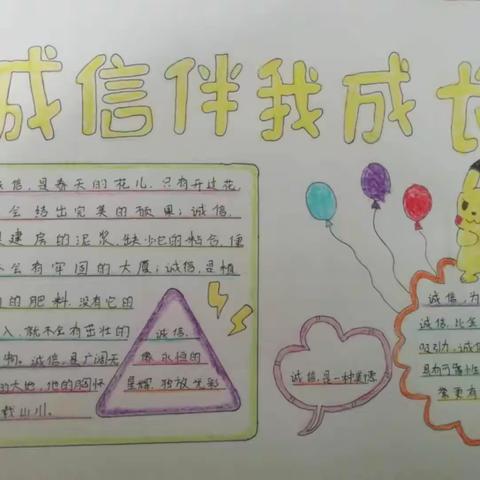 诚信伴我成长
诚信,是春天的花儿,只有开过花,
会结出完美的硕果;诚信,
是建房的泥浆,缺它的粘合,便
不会有牢固的大厦;诚信,是植
的肥料,没有它的
入,就不会有茁壮的
物。诚信,是广阔无
的大地,他的胸怀
载山川。
诚信,
像永恒的
星辉,独放光彩
诚信,是一种美德
诚信,为
诚信,比金
吸引力,诚信
具有可靠性
常更有